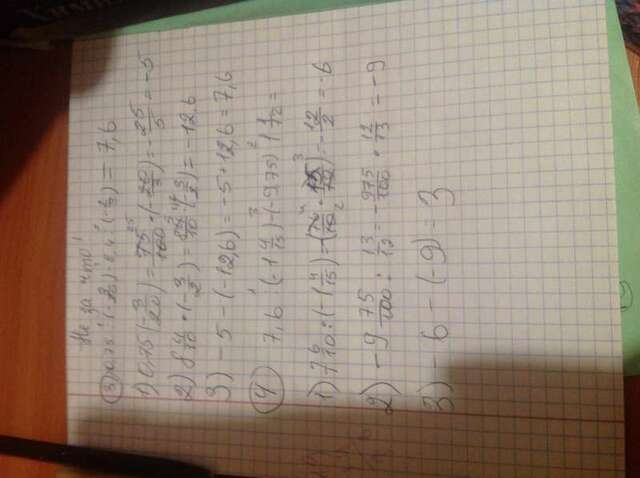 Не за что!
③ 0,75 : (-3/20) - 8,4 · (-1 1/2) = 7,6
1) 0,75 (-3/20) = 75/100 · (-20/3) = -25/5 = -5
2) 8 4/10 · (-3/2) = 84/10 · (-3/2) = -12,6
3) -5 - (-12,6) = -5 + 12,6 = 7,6
④ 7,6 : (-1 4/15) - (-9,75) : 1 1/12 =
1) 7 6/10 : (-1 4/15) = (76/10 · 15/19) = -12/2 = -6
2) -9 75/100 : 13/12 = -975/100 · 12/13 = -9
3) -6 - (-9) = 3